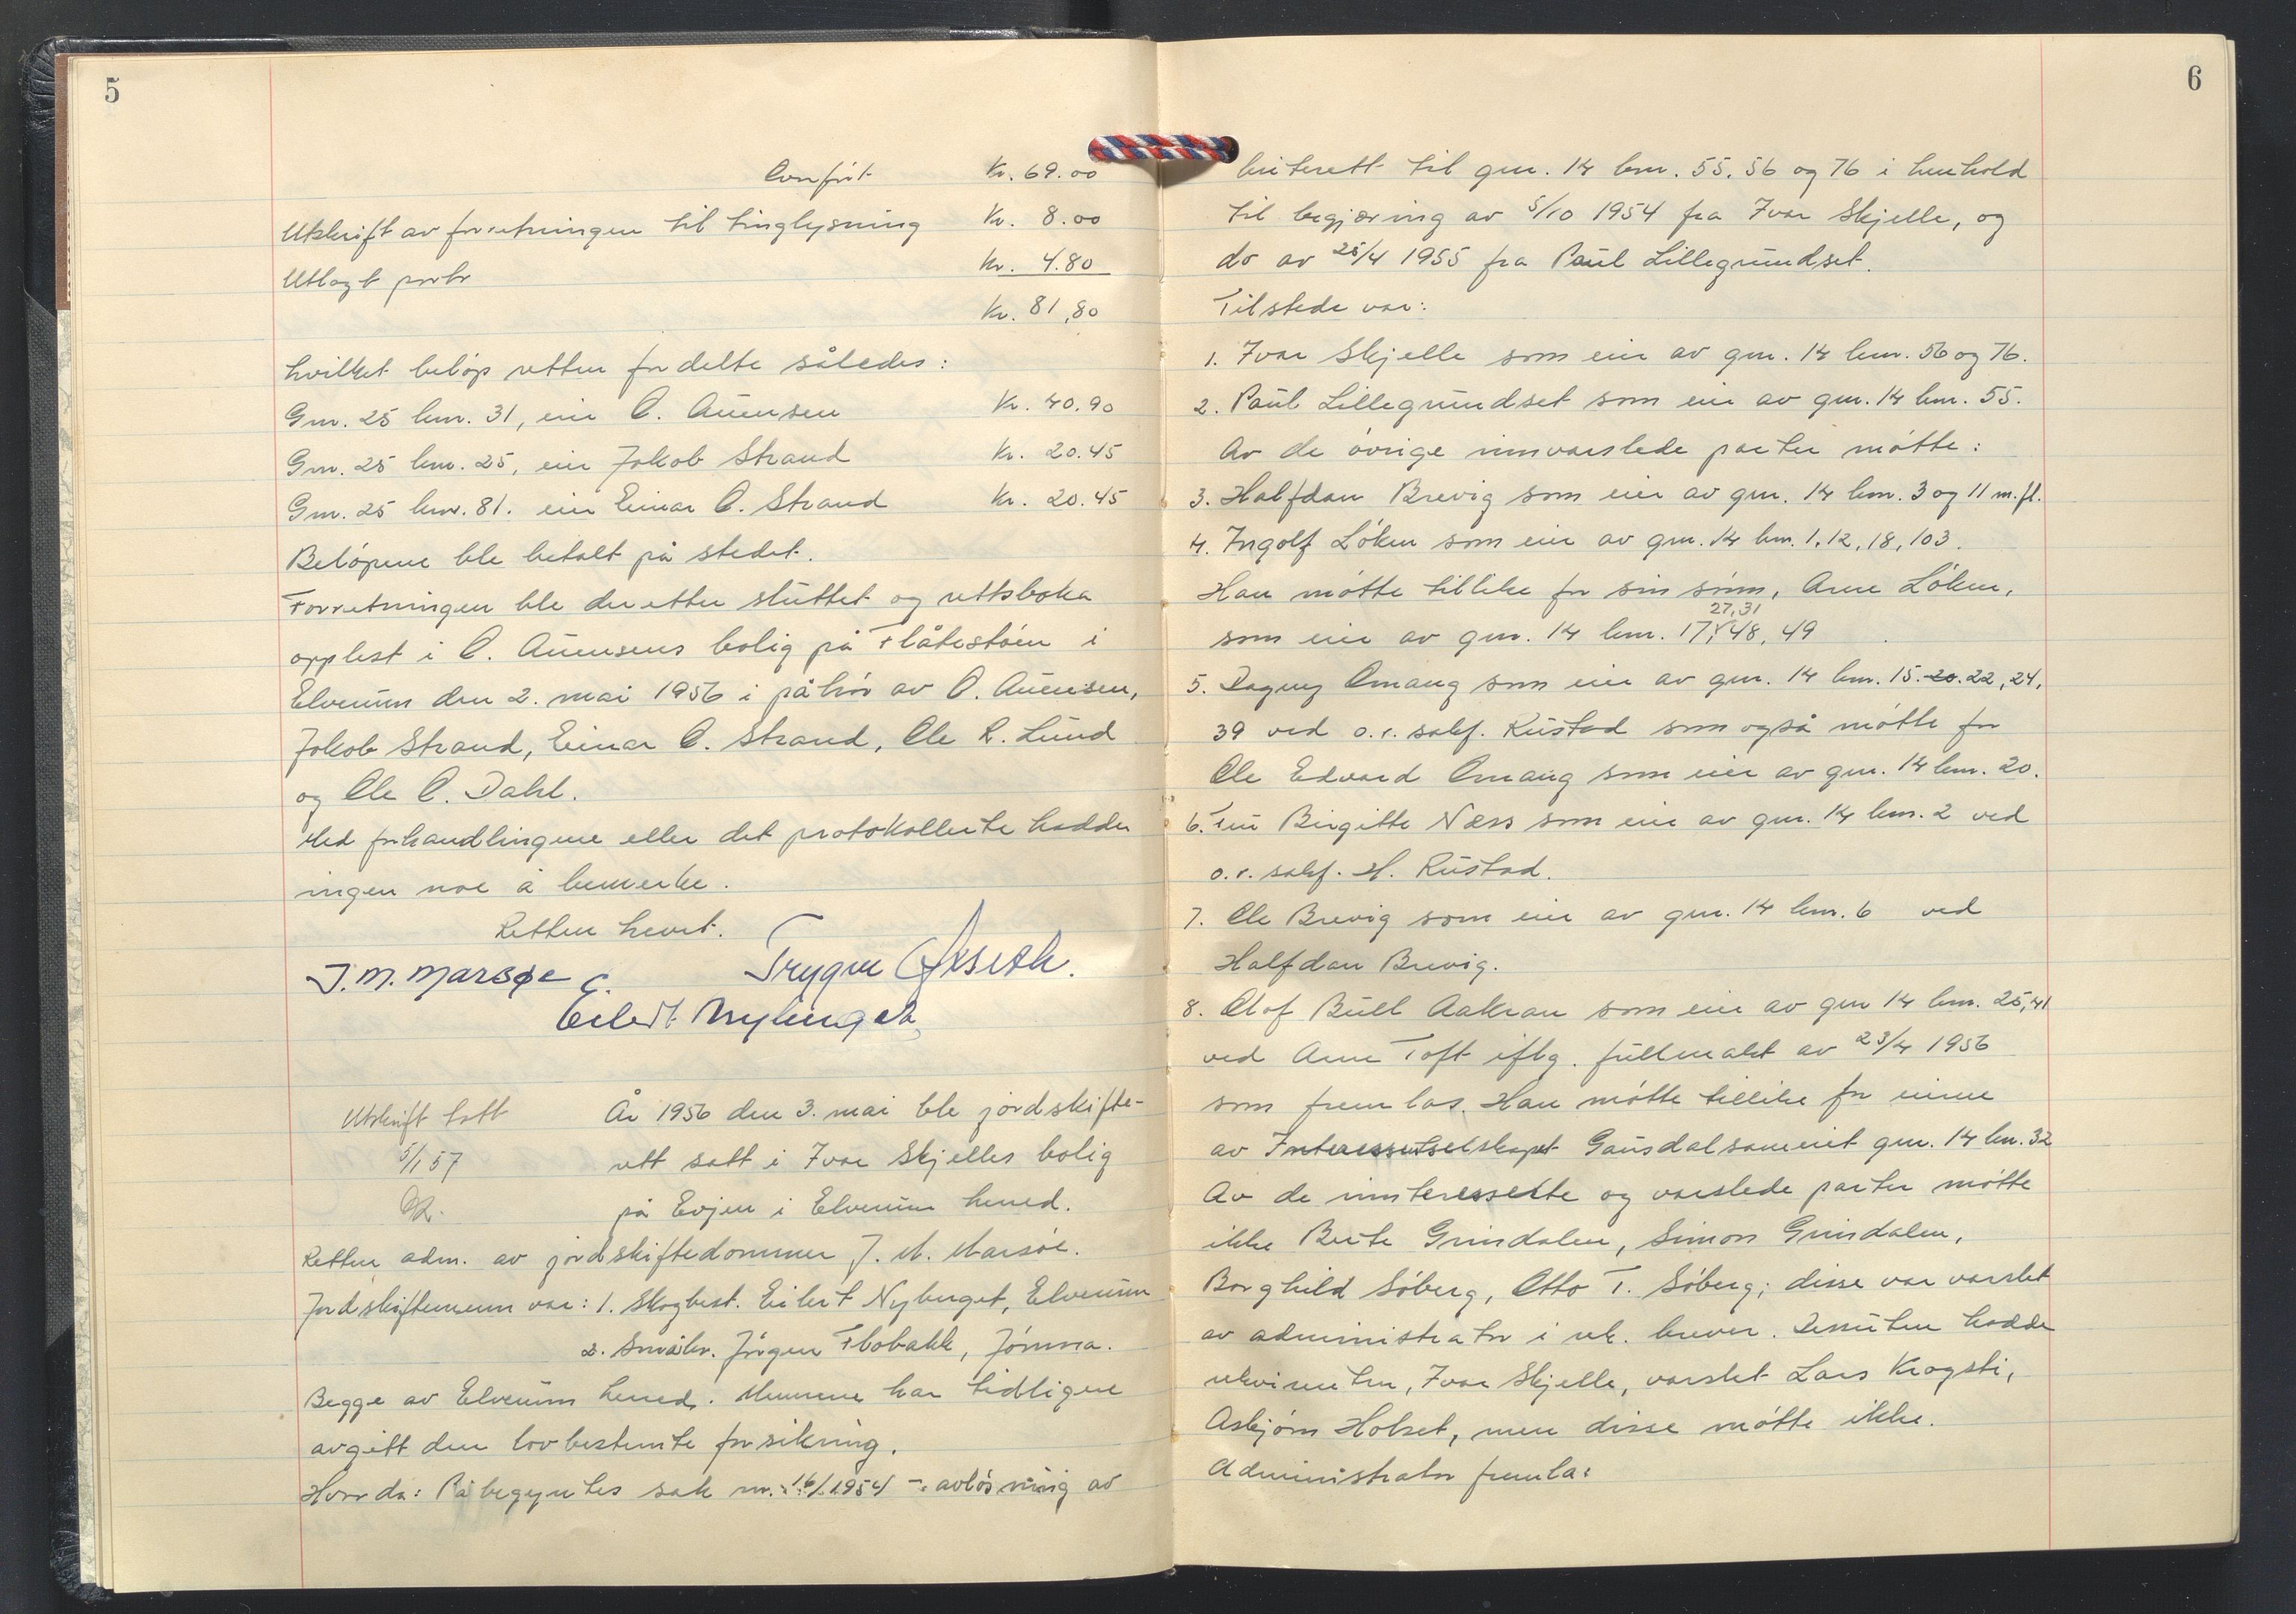 5
Overført Kr. 69.00
Utskrift av forretningen til tinglysning Kr. 8.00
Utlagt porto Kr. 4.80
Kr. 81,80
hvilket beløp retten fordelte således:
Gnr. 25 bnr. 31, eier O. Auensen Kr. 40.90
Gnr. 25 bnr. 25, eier Jakob Strand Kr. 20.45
Gnr. 25 bnr. 81. eier Einar O. Strand Kr. 20.45
Beløpene ble betalt på stedet.
Forretningen ble deretter sluttet og rettsboka
opplest i O. Auensens bolig på Flåtestøen i
Elverum den 2. mai 1956 i påhør av O. Auensen,
Jakob Strand, Einar O. Strand, Ole R. Lund
og Ole O. Dahl.
Med forhandlingene eller det protokollerte hadde
ingen noe å bemerke.
Retten hevet.
J. M. Marsøe Trygve
Eilert Nyberget
Utskrift tatt
5/1 57
År 1956 den 3. mai ble jordskifte-
rett satt i Ivar Skjelles bolig
på Evjen i Elverum herred.
Retten adm. av jordskiftedommer J. M. Marsøe.
Jordskiftemenn var: 1. Skogbest. Eilert Nyberget, Elverum
2. Småbr. Jørgen Flobakk, Jømna.
Begge av Elverum herred. Mennene har tidligere
avgitt den lovbestemte forsikring.
Hvorda: Påbegyntes sak nr. 16/1954 - avløsning av
6
beiterett til gnr. 14 bnr. 55. 56 og 76 i henhold
til begjæring av 5/10 1954 fra Ivar Skjelle, og
do av 25/4 1955 fra Paul Lillegrundset.
Tilstede var:
1. Ivar Skjelle som eier av gnr. 14 bnr. 56 og 76.
2. Paul Lillegrundset som eier av gnr. 14 bnr. 55.
Av de øvrige innvarslede parter møtte:
3. Halfdan Brevig som eier av gnr. 14 bnr. 3 og 11 m.fl.
4. Ingolf Løken som eier av gnr. 14 bnr. 1, 12, 18, 103.
Han møtte tillike for sin sønn, Arne Løken,
27, 31
som eier av gnr. 14 bnr. 17, 48, 49
5. Dagny Omang som eier av gnr. 14 bnr. 15. 20. 22, 24,
39 ved o.r. sakf. Rustad som også møtte for
Ole Edvard Omang som eier av gnr. 14 bnr. 20.
6. Fru Birgitte Næss som eier av gnr. 14 bnr. 2 ved
o.r. sakf. H. Rustad.
7. Ole Brevig som eier av gnr. 14 bnr. 6 ved
Halfdan Brevig.
8. Olof Bull Aakran som eier av gnr 14 bnr. 25, 41
ved Arne Toft iflg. fullmakt av 23/4 1956
som fremlas. Han møtte tillike for eierne
av Interessentselskapet Gausdalsameiet gnr. 14 bnr. 32
Av de innteressette og varslede parter møtte
ikke Berte Grindalen, Simon Grindalen,
Borghild Søberg, Otto T. Søberg; disse var varslet
av administrator i rek. brever. Dessuten hadde
rekvirenten, Ivar Skjelle, varslet Lars Krogsti,
Asbjørn Holset, men disse møtte ikke.
Administrator fremla: